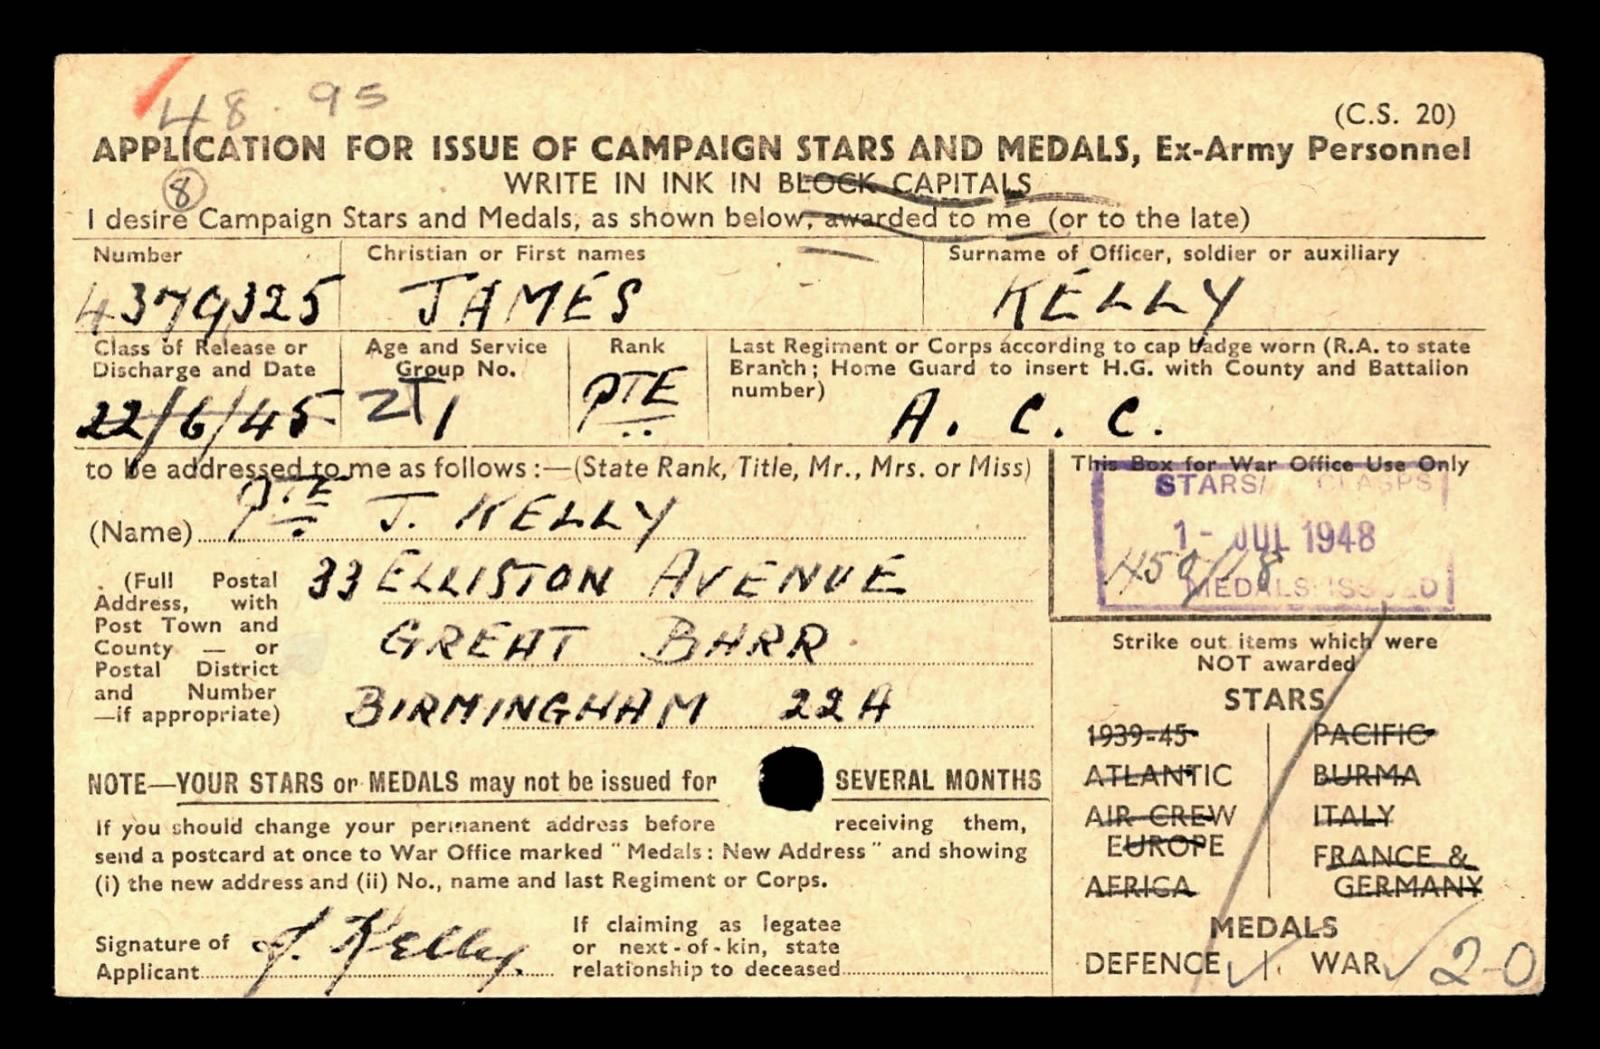 48.95
(C.S. 20)
APPLICATION FOR ISSUE OF CAMPAIGN STARS AND MEDALS, Ex-Army Personnel
8
WRITE IN INK IN BLOCK CAPITALS
I desire Campaign Stars and Medals, as shown below, awarded to me (or to the late)
Number Christian or First names Surname of Officer, soldier or auxiliary
4379325 JAMES KELLY
Class of Release or Discharge and Date
Age and Service Group No.
Rank
Last Regiment or Corps according to cap badge worn (R.A. to state
Branch; Home Guard to insert H.G. with County and Battalion
number)
22/6/45 PTE A. C. C.
to be addressed to me as follows:—(State Rank, Title, Mr., Mrs. or Miss)
(Name) PTE J. KELLY
(Full Postal
Address, with
Post Town and
County — or
Postal District
and Number
—if appropriate)
33 ELLISTON AVENUE
GREAT BARR
BIRMINGHAM 22A
This Box for War Office Use Only
STARS/ CLASPS
1 - JUL 1948
MEDALS ISSUED
Strike out items which were
NOT awarded
STARS
1939-45 PACIFIC
ATLANTIC BURMA
AIR CREW ITALY
EUROPE FRANCE &
AFRICA GERMANY
MEDALS
DEFENCE WAR 20
NOTE—YOUR STARS or MEDALS may not be issued for SEVERAL MONTHS
If you should change your permanent address before receiving them,
send a postcard at once to War Office marked "Medals: New Address" and showing
(i) the new address and (ii) No., name and last Regiment or Corps.
Signature of
Applicant J. Kelly
If claiming as legatee
or next-of-kin, state
relationship to deceased